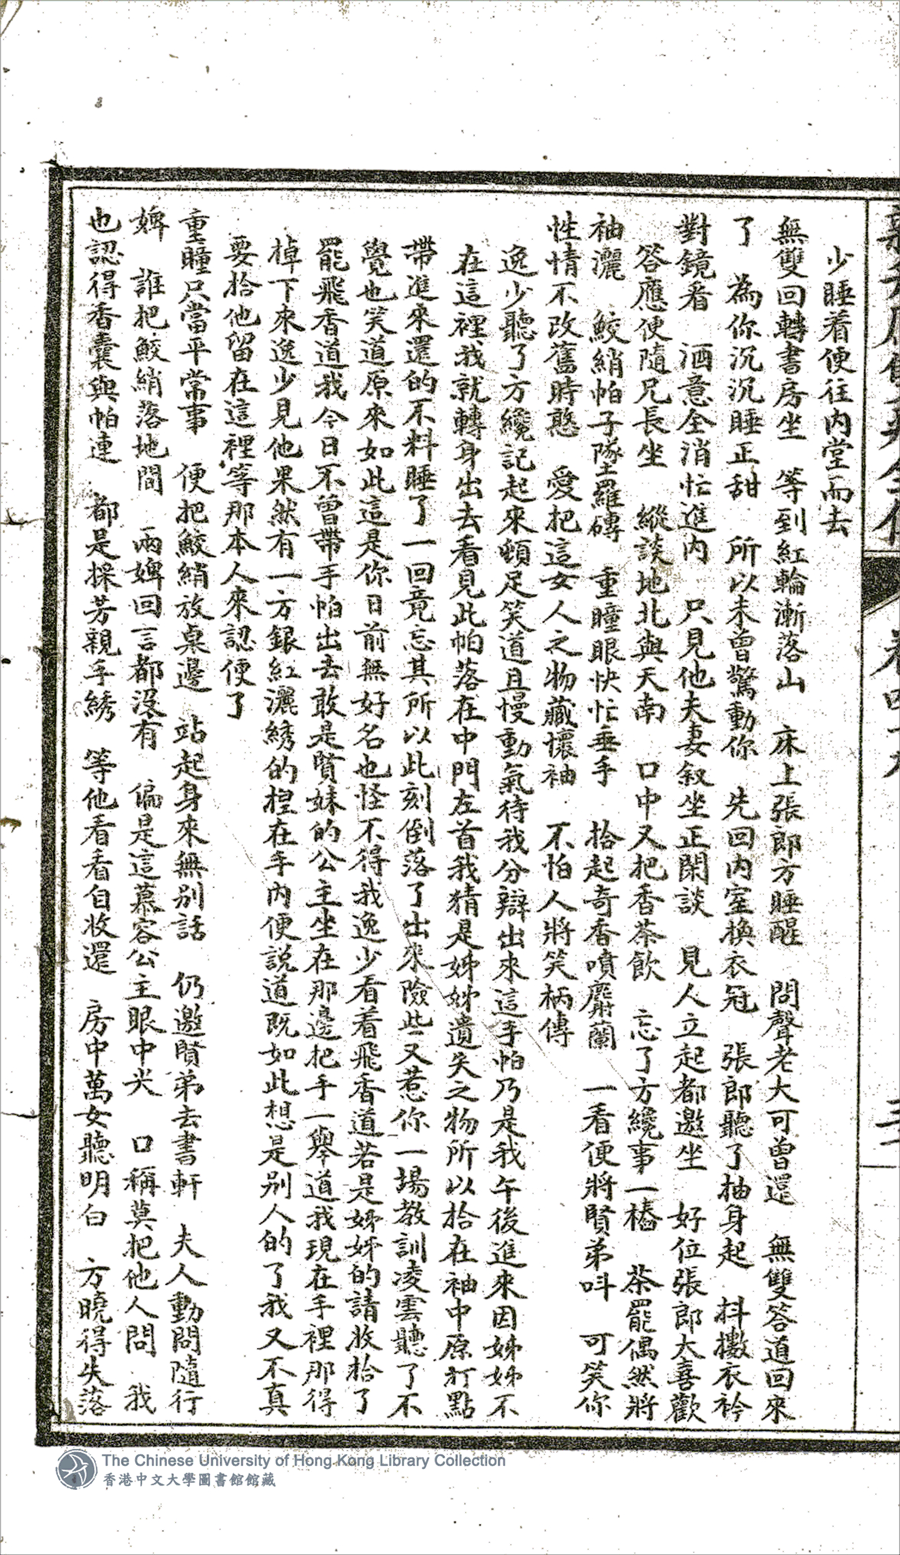 少睡着便往内堂而去
無雙回轉書房坐 等到紅輪漸落山 床上張郎方睡醒 問聲老大可曾還 無雙答道回來
了 為你沉沉睡正甜 所以未曾驚動你 先回内室換衣冠 張郎聽了抽身起 抖擻衣衿
對鏡看 酒意全消忙進内 只見他夫妻叙坐正閑談 見人立起都邀坐 好位張郎大喜歡
答應便隨兄長坐 縱談地北與天南 口中又把香茶飲 忘了方纔事一樁 茶罷偶然將
袖灑 鮫綃帕子墜羅磚 重瞳眼快忙垂手 拾起奇香噴麝蘭 一看便將賢弟叫 可笑你
性情不改舊時憨 愛把這女人之物藏懷袖 不怕人將笑柄傳
逸少聽了方纔記起來頓足笑道且慢動氣待我分辯出來這手帕乃是我午後進來因姊姊不
在這裡我就轉身出去看見此帕落在中門左首我猜是姊姊遺失之物所以拾在袖中原打點
帶進來還的不料睡了一回竟忘其所以此刻倒落了出來險些又惹你一場教訓凌雲聽了不
覺也笑道原來如此這是你日前無好名也怪不得我逸少看着飛香道若是姊姊的請收拾了
罷飛香道我今日不曾帶手帕出去敢是賢妹的公主坐在那邊把手一舉道我現在手裡那得
掉下來逸少見他果然有一方銀紅灑綉的揑在手内便説道既如此想是别人的了我又不真
要拾他留在這裡等那本人來認便了
重瞳只當平常事 便把鮫綃放桌邊 站起身來無别話 仍邀賢弟去書軒 夫人動問隨行
婢 誰把鮫綃落地間 兩婢回言都没有 偏是這慕容公主眼中尖 口稱莫把他人問 我
也認得香囊與帕連 都是採芳親手綉 等他看看自收還 房中萬女聽明白 方曉得失落
The Chinese University of Hong Kong Library Collection
香港中文大學圖書館館藏